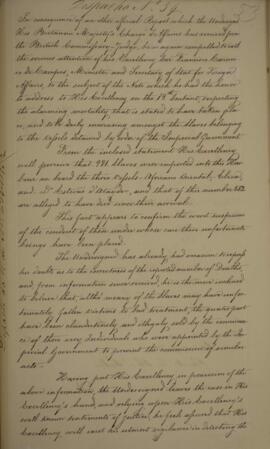 Despacho N. 39
In consequence of another official Report which the Undersigned
His Britannic Majesty's Chargé d'Affaires has received from
the British Commissary Judge, he is again compelled to call
the serious attention of His Excellency Carneiro
de Campos, Minister and Secretary of State for Foreign
Affairs, to the subject of the Note which he had the honor
to address to His Excellency on the Instant, respecting
the alarming mortality that is stated to have taken place,
and to be daily increasing amongst the Slaves belonging
to the Vessels detained by order of the Imperial Government
From the inclosed statement His Excellency
will perceive that 981 Slaves were imported into this Harbour
on board the three Vessels. Africano Oriental,
and Estevão d'Ataide, and that of this number
are alleged to have died since their arrival.
This fact appears to confirm the worst suspicion
of the conduct of those under whose care these unfortunate
beings have been placed.
The Undersigned has already had occasion to express
his doubts as to the correctness of the reported number of Deaths,
and from information since received, he is the more inclined
to believe that, although many of the Slaves may have unfortunately
fallen victims to bad treatment, the greater part
have been clandestinely and illegally sold by the connivance
of those very Individuals who were appointed by the Imperial
Government to prevent the commission of similar
acts.
Having put His Excellency in possession of the
above information, the Undersigned leaves the case in His
Excellency's hand, and relying upon His Excellency's
well known sentiments of justice, he feels assured that His
Excellency will exert his utmost vigilance in detecting the